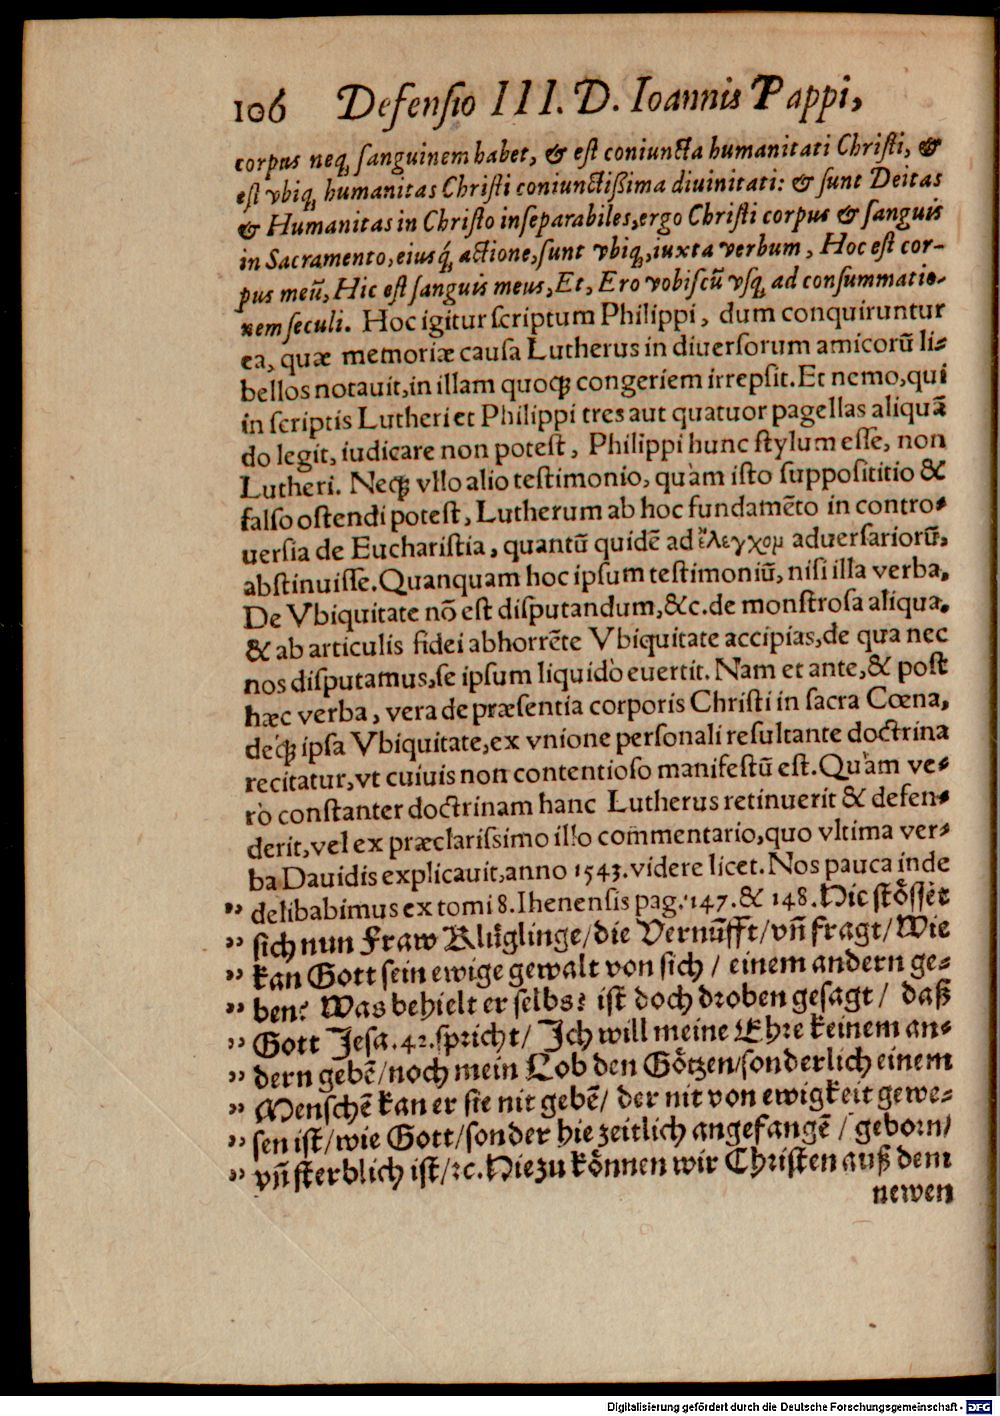 106 Defensio III. D. Ioannis Pappi,
corpus neq; sanguinem habet, & est coniuncta humanitati Christi, &
est vbiq; humanitas Christi coniunctißima diuinitati: & sunt Deitas
& Humanitas in Christo inseparabiles, ergo Christi corpus & sanguis
in Sacramento, eiusq́; actione, sunt vbiq;, iuxta verbum, Hoc est cor-
pus meũ, Hic est sanguis meus, Et, Ero vobiscũ vsq; ad consummatio-
nem seculi. Hoc igitur scriptum Philippi, dum conquiruntur
ea, quæ memoriæ causa Lutherus in diuersorum amicorũ li-
bellos notauit, in illam quoq; congeriem irrepsit. Et nemo, qui
in scriptis Lutheri et Philippi tres aut quatuor pagellas aliquã
do legit, iudicare non potest, Philippi hunc stylum esse, non
Lutheri. Neq; vllo alio testimonio, quàm isto supposititio &
falso ostendi potest, Lutherum ab hoc fundamẽto in contro-
uersia de Eucharistia, quantũ quidẽ ad ἔλεγχομ aduersariorũ,
abstinuisse. Quanquam hoc ipsum testimoniũ, nisi illa verba,
De Vbiquitate nõ est disputandum, &c. de monstrosa aliqua,
& ab articulis fidei abhorrẽte Vbiquitate accipias, de qua nec
nos disputamus, se ipsum liquidò euertit. Nam et ante, & post
hæc verba, vera de præsentia corporis Christi in sacra Cœna,
deq́; ipsa Vbiquitate, ex vnione personali resultante doctrina
recitatur, vt cuiuis non contentioso manifestũ est. Quàm ve-
rò constanter doctrinam hanc Lutherus retinuerit & defen-
derit, vel ex præclarissimo illo commentario, quo vltima ver-
ba Dauidis explicauit, anno 1543. videre licet. Nos pauca inde
" delibabimus ex tomi 8. Ihenensis pag. 147. & 148. Hie stösset
" sich nun Fraw Klüglinge/ die Vernũfft/ vñ fragt/ Wie
" kan Gott sein ewige gewalt von sich / einem andern ge-
" ben? Was behielt er selbs? ist doch droben gesagt / daß
" Gott Jesa. 42. spricht/ Ich will meine Ehre keinem an-
" dern gebẽ/ noch mein Lob den Götzen/ sonderlich einem
" Menschẽ kan er sie nit gebẽ/ der nit von ewigkeit gewe-
" sen ist/ wie Gott/ sonder hie zeitlich angefangẽ / geborn/
" vñ sterblich ist/ ꝛc. Hiezu können wir Christen auß dem
newen
Digitalisierung gefördert durch die Deutsche Forschungsgemeinschaft - DFG